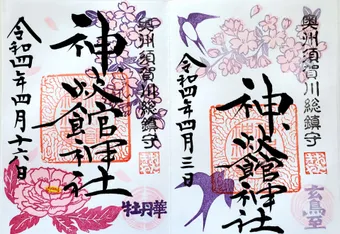 奥州須賀川総鎮守
神炊館神社
令和四年四月二十六日
牡丹華
奥州須賀川総鎮守
神炊館神社
令和四年四月三日
玄鳥至